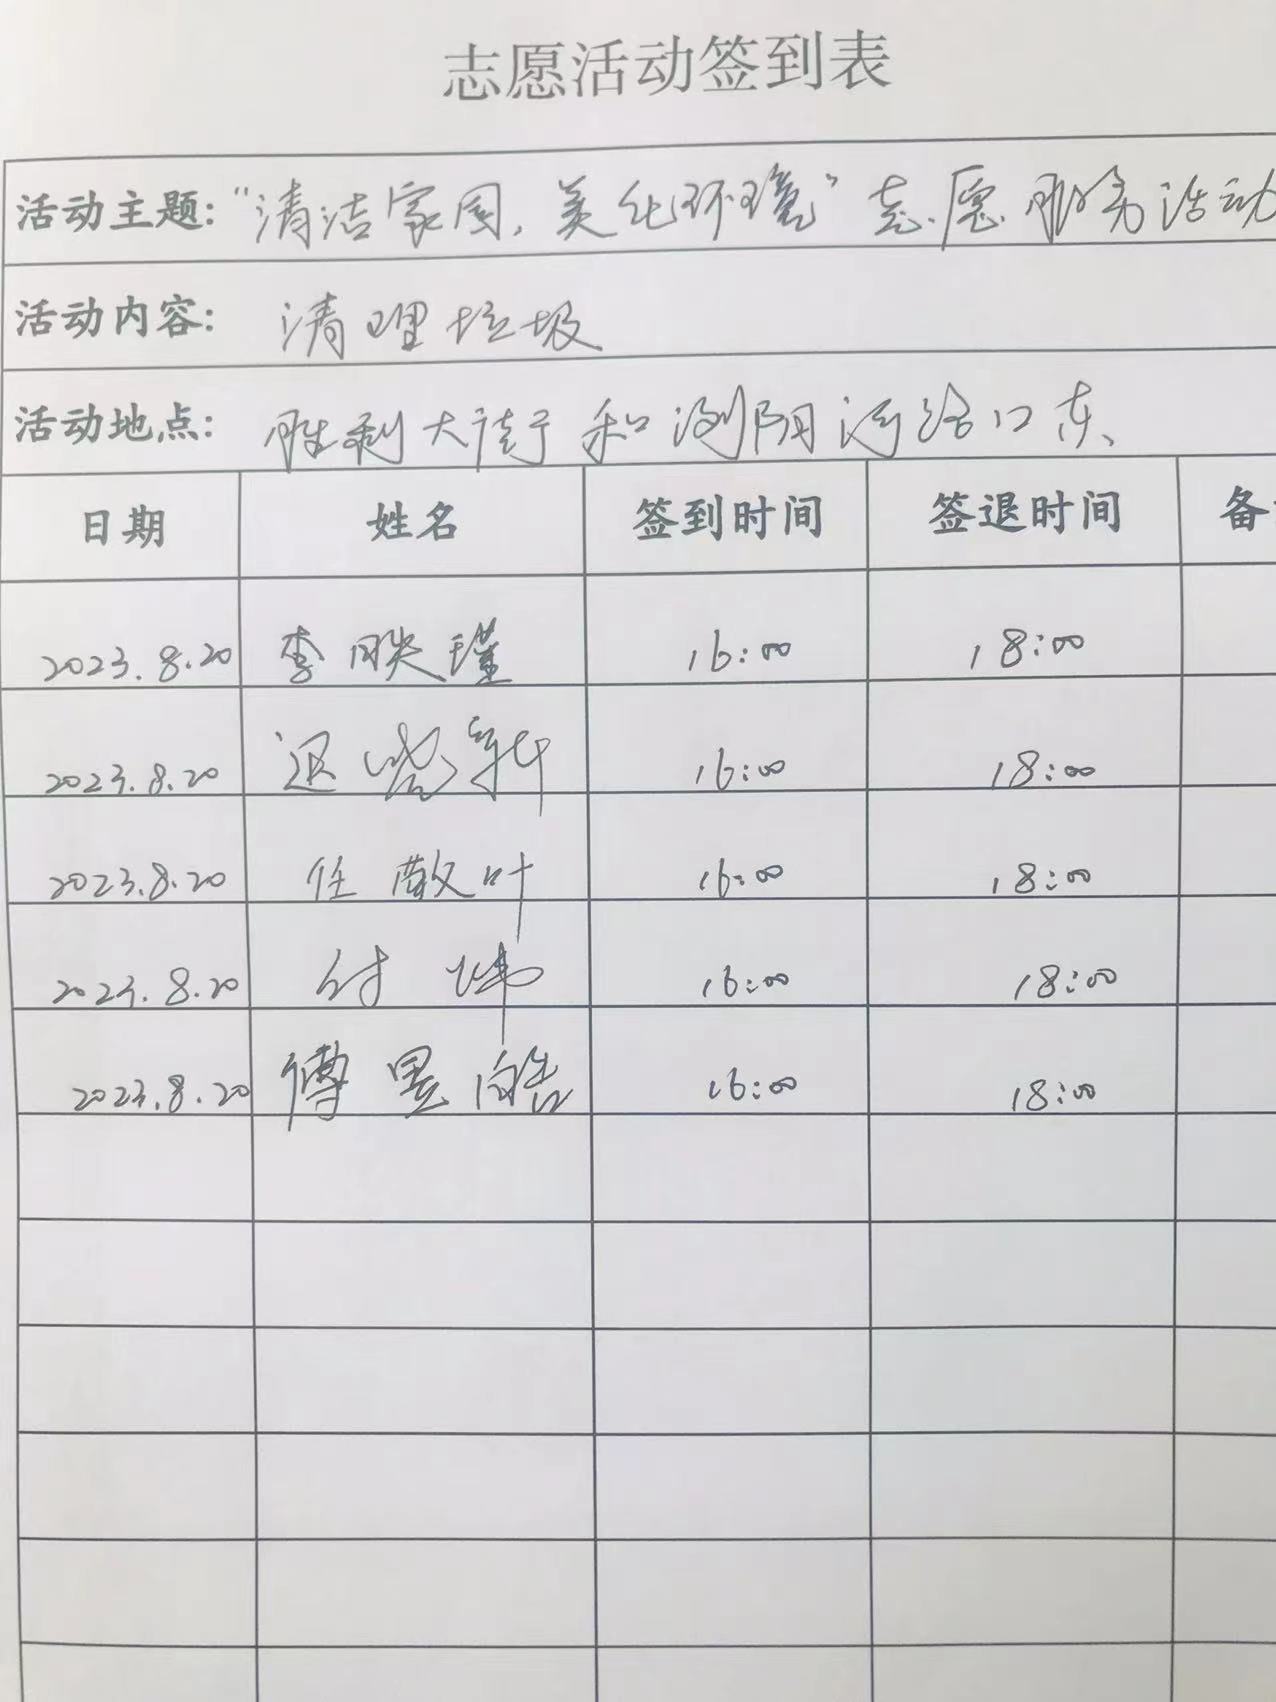 志愿活动签到表
活动主题: “清洁家园,美化环境”志愿服务活动
活动内容: 清理垃圾
活动地点: 胜利大街和浏阳河路口东、
日期 姓名 签到时间 签退时间 备
2023.8.20 李映瑾 16:00 18:00
2023.8.20 16:00 18:00
2023.8.20 任散叶 16:00 18:00
2023.8.20 付玮 16:00 18:00
2023.8.20 傅昱皓 16:00 18:00